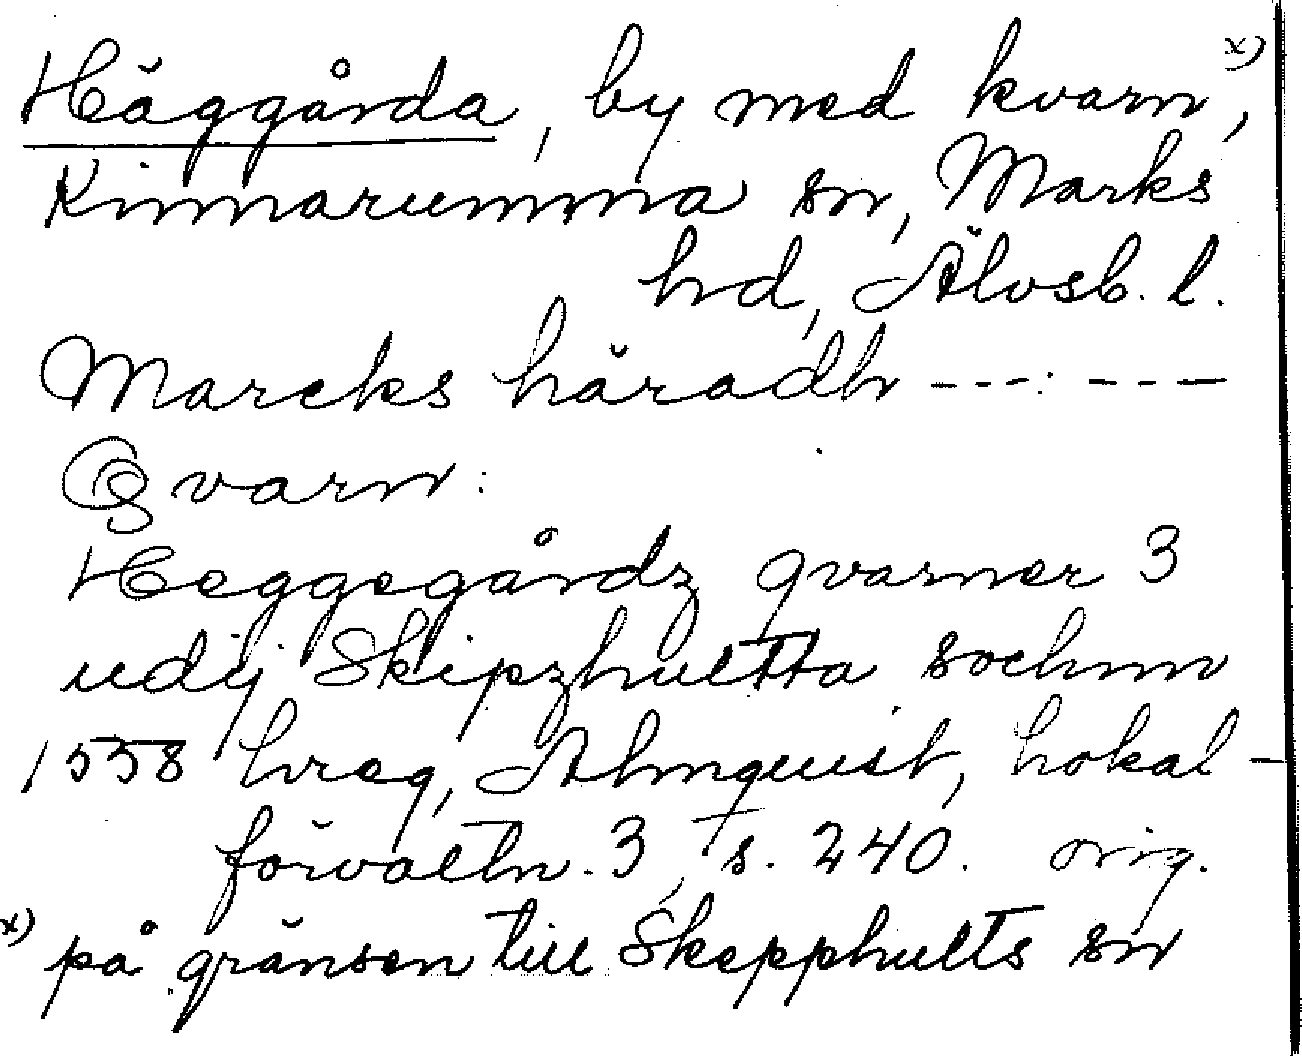 Häggårda, by med kvarn x),
Kinnarumma sn, Marks
hd, Älvsb. l.
Marcks häradh ---:---
Qvarn:
Heggegårdz qvarner 3
udij Skipzhultta sochnn
1558 hreg, Almquist, Lokal-
förvaltn. 3, s. 240. orig.
x) på gränsen till Skepphults sn